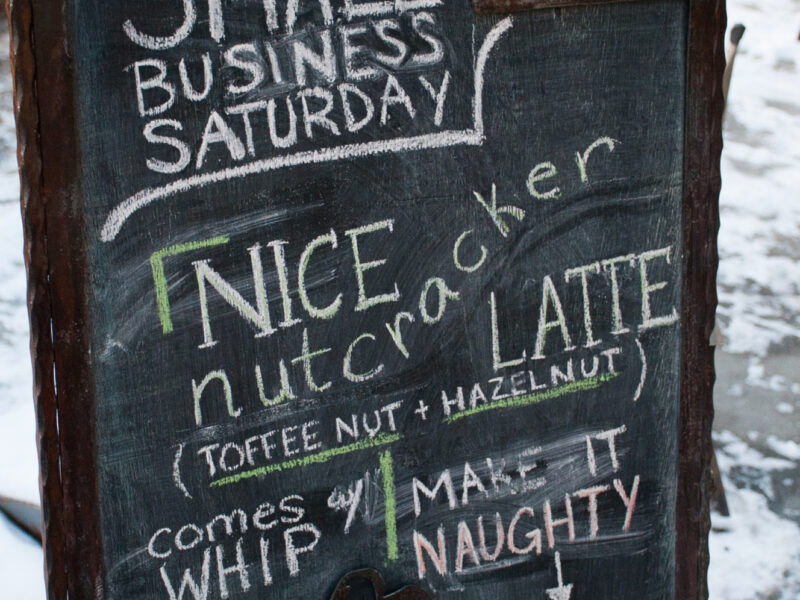 SMALL
BUSINESS
SATURDAY
NICE
nutcracker
LATTE
(TOFFEE NUT + HAZELNUT)
comes w/
WHIP
MAKE IT
NAUGHTY